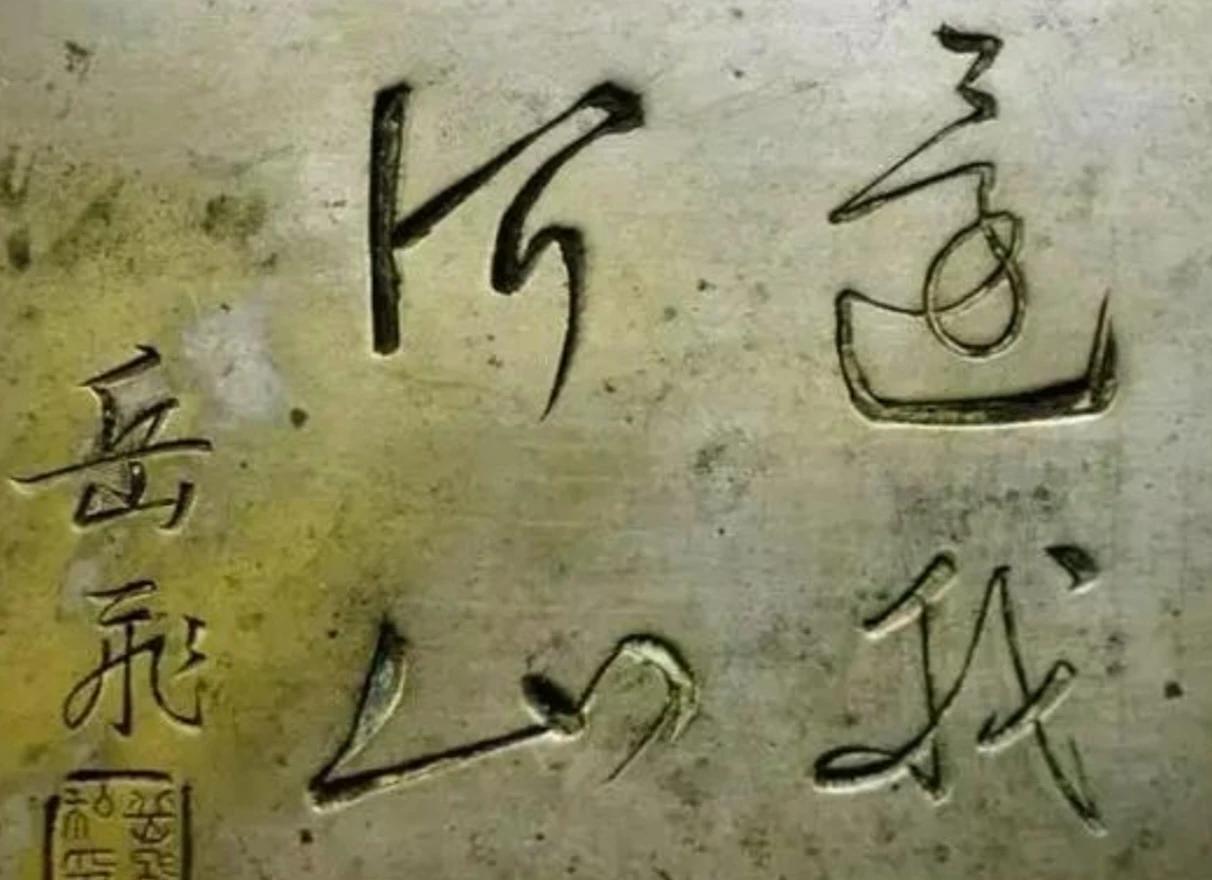 还我
河山
岳飛